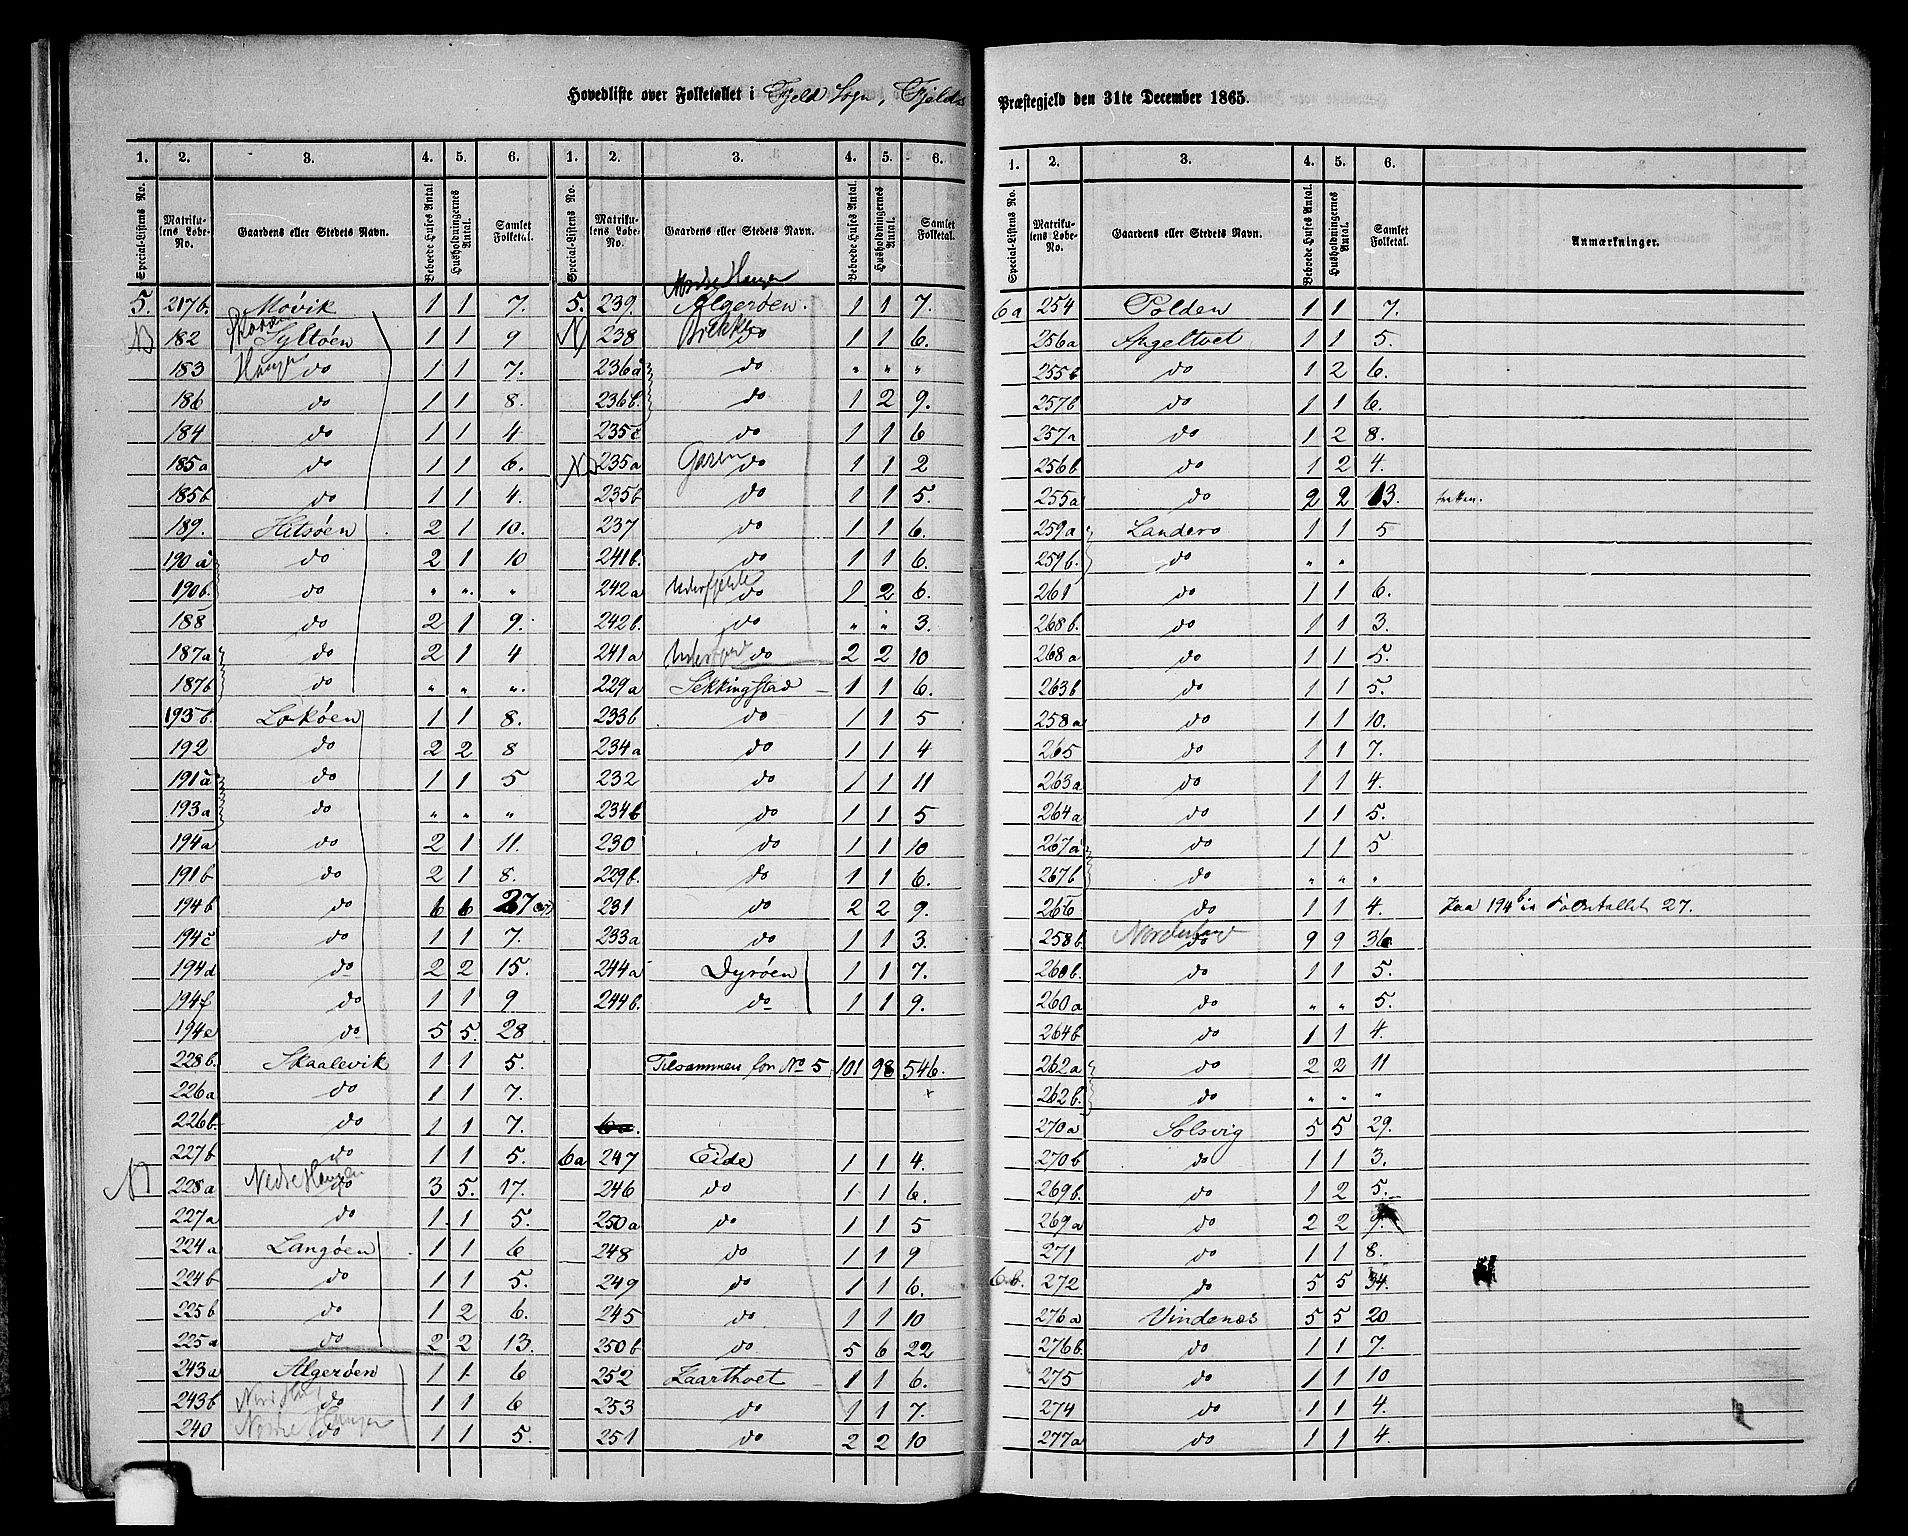 Hovedliste over Folketallet i Fjeld Sogn, Fjelds Præstegjeld den 31te December 1865.
1. 2. 3. 4. 5. 6. 1. 2. 3. 4. 5. 6.
Special-Listens No. Matrikulens Løbe-No. Gaardens eller Stedets Navn. Beboede Huses Antal. Husholdningernes Antal. Samlet Folketal. Special-Listens No. Matrikulens Løbe-No. Gaardens eller Stedets Navn. Beboede Huses Antal. Husholdningernes Antal. Samlet Folketal.
5. 217b. Møvik 1 1 7.
182 Syltøen 1 1 9
183 do 1 1 7.
186 do 1 1 8.
184 do 1 1 4
185a do 1 1 6.
185b do 1 1 4.
189. Hitsøen 2 1 10.
190a do 2 1 10
190b. do " " "
188 do 2 1 9.
187a do 2 1 4
187b do " " "
193b. Lokøen 1 1 8.
192 do 2 2 8
191a do 1 1 5
193a do " " "
194a do 2 1 11.
191b do 2 1 8.
194b do 6 6 27
194c do 1 1 7.
194d do 2 2 15.
194f do 1 1 9
194e do 5 5. 28
228b. Skaalevik 1 1 5.
226a do 1 1 7.
226b do 1 1 7.
227b do 1 1 5.
228a Nedre Haugen do 3 5. 17.
227a do 1 1 5.
224a Langøen 1 1 6
224b do 1 1 5.
225b do 1 2 6.
225a do 2 2 13.
243a Algerøen 1 1 6
243b do 1 1 6
240 do 1 1 5.
5. 239. Nordre Haugen Algerøen. 1 1 7.
238 Brekke do 1 1 6.
236a do " " "
236b. do 1 2 9.
235c do 1 1 6
235a do 1 1 2
235b do 1 1 5.
237 do 1 1 6.
241b. do 1 1 6.
242a do 1 2 6.
242b. do " " 3.
241a do 2 2 10
229a Sekkingstad 1 1 6.
233b do 1 1 5
234a do 1 1 4
232 do 1 1 11
234b do 1 1 5
230 do 1 1 10
229b. do 1 1 6.
231 do 2 2 9.
233a do 1 1 3.
244a Dyrøen 1 1 7.
244b. do 1 1 9.
Tilsammen for No 5 101 98 546.
6a 247 Eide 1 1 4.
246 do 1 1 6.
250a do 1 1 5
248 do 1 1 9
249 do 1 1 6.
245 do 1 1 10
250b do. 5 6 22
252 Kaarthvet 1 1 6.
253 do 1 1 7.
251 do 2 2 10
1. 2. 3. 4. 5. 6.
Special-Listens No. Matrikulens Løbe-No. Gaardens eller Stedets Navn. Beboede Huses Antal. Husholdningernes Antal. Samlet Folketal. Anmærkninger.
6a 254 Polden 1 1 7.
256a Angeltvet 1 1 5.
255b do 1 2 6.
257b do 1 1 6.
257a do 1 2 8.
256b do 1 2 4.
255a do 2 2 13. tretten.
259a Landero 1 1 5
259b. do " "
261 do 1 1 6.
268b. do 1 1 3.
268a do 1 1 5.
263b do 1 1 5.
258a do 1 1 10.
265 do 1 1 7.
263a do 1 1 4.
264a do 1 1 5.
267a do 1 1 5
267b do " " "
266 do 1 1 4. Paa 194b is Folketallet 27.
258b. do 9 9 36
260b. do 1 1 5.
260a do " " 5.
264b do 1 1 4.
262a do 2 2 11
262b. do " " "
270a Solsvig 5 5 29.
270b do 1 1 3.
269b. do 1 2 5.
269a do 2 2 9.
271 do 1 1 8.
6.b. 272 do 5 5 34.
276a Vindenæs 5 5 20
276b. do 1 1 7.
275 do 1 1 10
274 do 1 1 4.
277a do 1 1 4.